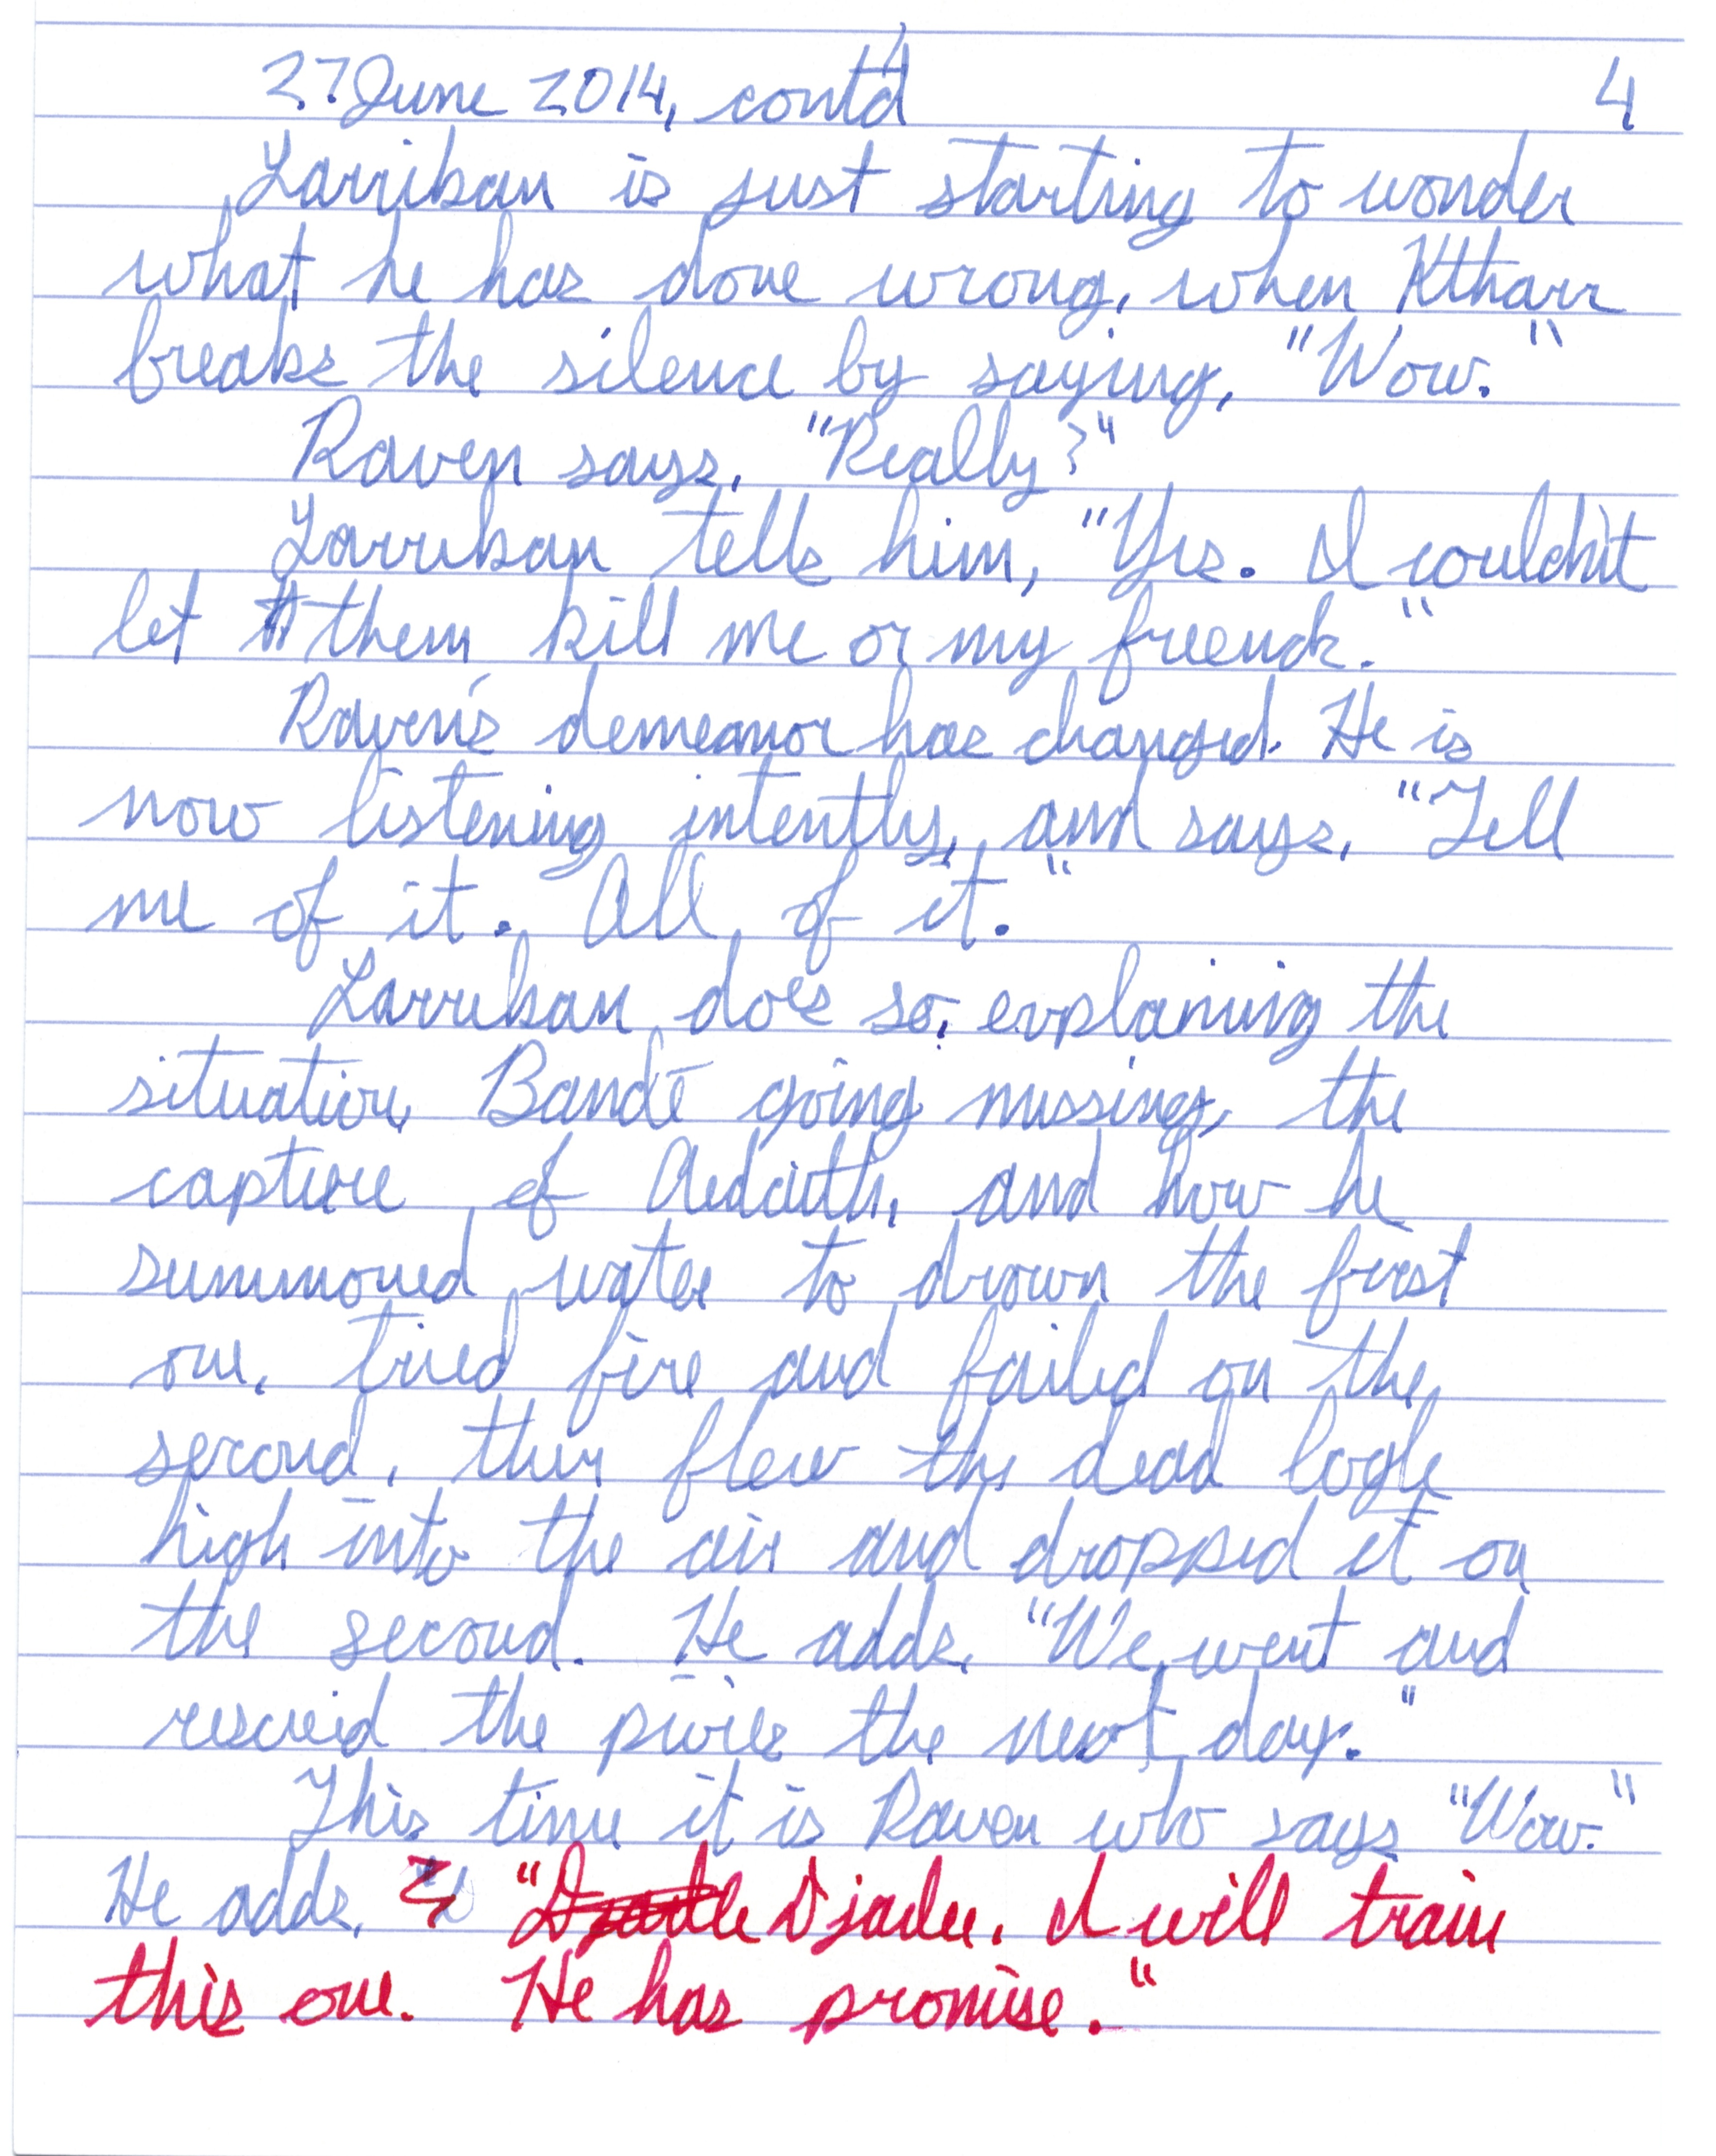 27 June 2014, cont'd 4
Larriban is just starting to wonder
what he has done wrong, when Ktharr
breaks the silence by saying, "Wow."
Raven says, "Really?"
Larriban tells him, "Yes. I couldn't
let them kill me or my friends."
Raven's demeanor has changed. He is
now listening intently, and says, "Tell
me of it. All of it."
Larriban does so, explaining the
situation, Bandï going missing, the
capture of and how he
summoned water to drown the first
one, tried fire and failed on the
second, then flew the dead
high into the air and dropped it on
the second. He adds, "We went and
rescued the pixies the next day."
This time it is Raven who says "Wow."
He adds, "Djadu, I will train
this one. He has promise."